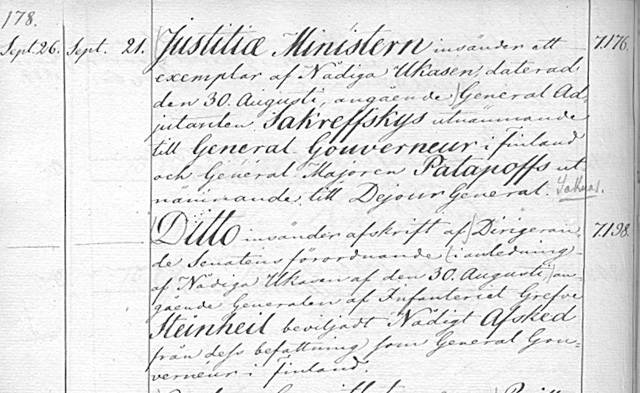 178.
Sept. 26. Sept. 21. Justitiæ Ministern insänder ett 7.176.
exemplar af Nådiga Ukasen, daterad
den 30. Augusti, angående General Ad-
jutanten Sakreffskys utnämnande
till General-Gouverneur i Finland
och General Majoren Patapoffs ut
nämnande till Dejour General. Saknas.
Ditto insänder afskrift af Dirigeran- 7.198.
de Senatens förordnande (i anledning
af Nådiga Ukasen af den 30. Augusti) an-
gående Generalen af Infanteriet Grefve
Steinheil beviljadt Nådigt Afsked
från dess befattning som General Gou-
verneur i Finland.